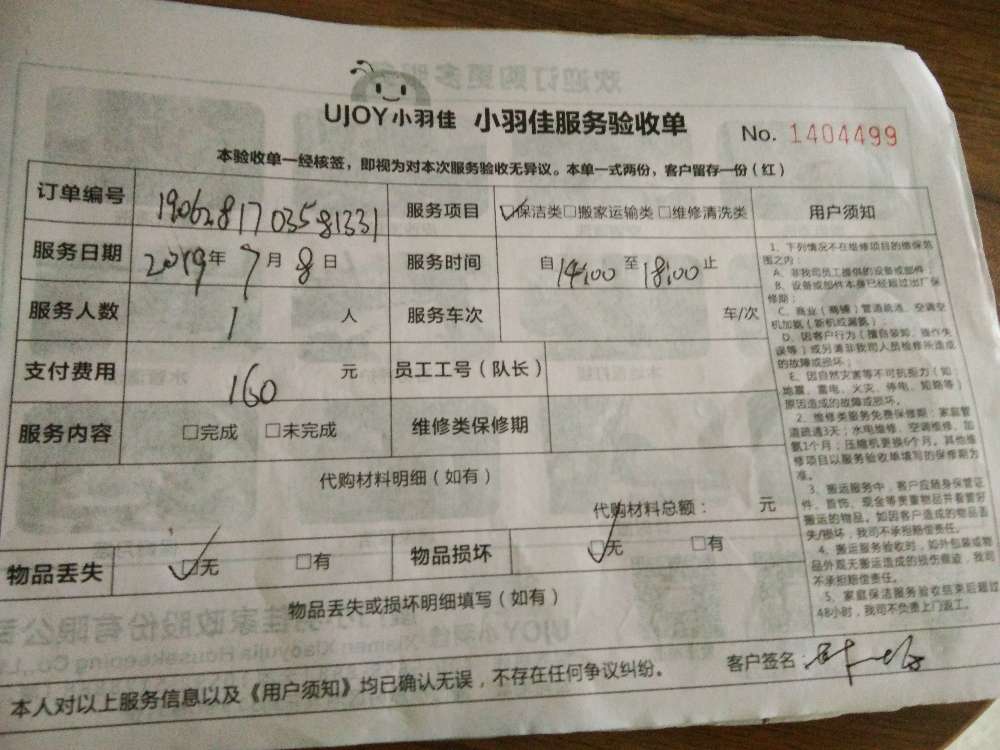 UJOY小羽佳 小羽佳服务验收单 No. 1404499
本验收单一经核签，即视为对本次服务验收无异议。本单一式两份，客户留存一份（红）
订单编号 190628170358133​1 服务项目 ☑保洁类□搬家运输类□维修清洗类 用户须知
服务日期 2019年7月8日 服务时间 自14:00至18:00止
服务人数 1 人 服务车次 车/次
支付费用 160 元 员工工号（队长）
服务内容 □完成 □未完成 维修类保修期
代购材料明细（如有）
代购材料总额： 元
物品丢失 ☑无 □有 物品损坏 ☑无 □有
物品丢失或损坏明细填写（如有）
本人对以上服务信息以及《用户须知》均已确认无误，不存在任何争议纠纷。 客户签名：
1、下列情况不在维修项目的维保范
围之内：
A、非我司员工提供的设备或部件；
B、设备或部件本身已经超过出厂保
修期；
C、商业（商铺）管道疏通、空调空
机加氨（新机或漏氨）；
D、因客户行为（擅自装卸、操作失
误等）或另请非我司人员维修所造成
的故障或损坏；
E、因自然灾害等不可抗拒力（如：
地震、雷电、火灾、停电、短路等）
原因造成的故障或损坏。
2、维修类服务免费保修期：家庭管
道疏通3天；水电维修、空调维修、加
氨1个月；压缩机更换6个月。其他维
修项目以服务验收单填写的保修期为
准。
3、搬运服务中，客户应随身保管证
件、首饰、现金等贵重物品并看管好
搬运的物品。如因客户造成的物品丢
失/损坏，我司不承担赔偿责任。
4、搬运服务验收时，如外包装或物
品外观无搬运造成的损伤痕迹，我司
不承担赔偿责任。
5、家庭保洁服务验收结束后超过
48小时，我司不负责上门返工。